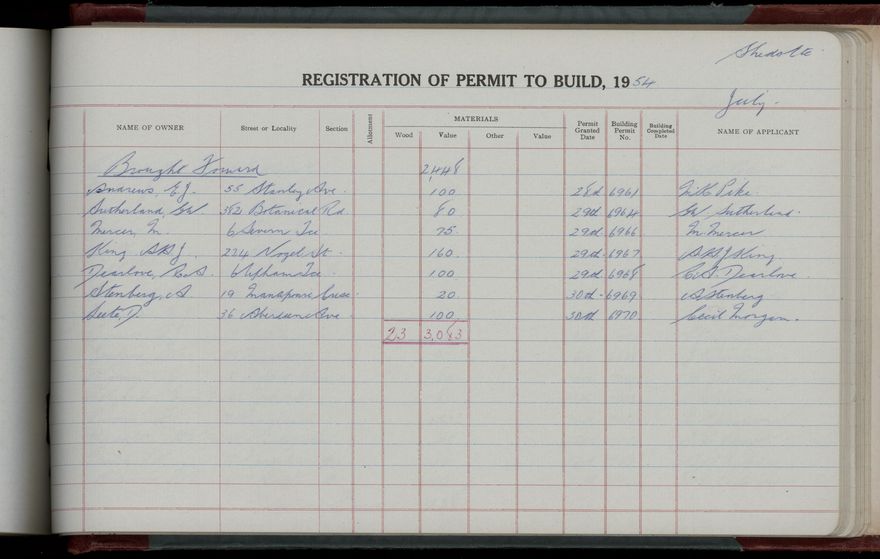 Sheds Etc.
REGISTRATION OF PERMIT TO BUILD, 1954
July.
NAME OF OWNER Street or Locality Section Allotment MATERIALS Wood Value Other Value Permit Granted Date Building Permit No. Building Completed Date NAME OF APPLICANT
Brought Forward 2,448
Andrews, E.J. 55 Stanley Ave. 100 28th 6961 Pike.
Sutherland, G.W. 382 Botanical Rd. 80 29th 6964 G.W. Sutherland.
Mercer, M. 6 Severn Tce. 75 29th 6966 M. Mercer
King J. 274 Vogel St. 160. 29th. 6967 J. King.
Dearlove, C.S. Upham Tce. 100 29th 6968 C.S. Dearlove.
Stenberg, A 19 Manapouri Cresc. 20. 30th. 6969 A Stenberg
36 Aberdeen Ave. 100. 30th 6970 Cecil Morgan.
23 3,083